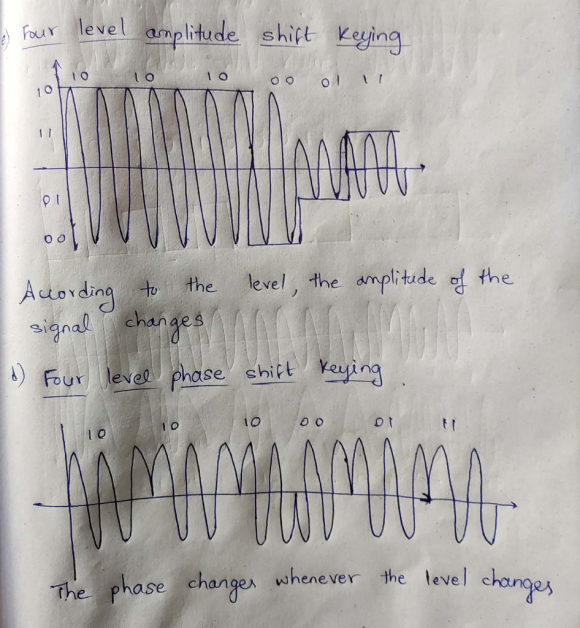 c) Four level amplitude shift keying
10 10 10 00 01 11
10
11
01
00
According to the level, the amplitude of the
signal changes
d) Four level phase shift keying.
10 10 10 00 01 11
The phase changes whenever the level changes